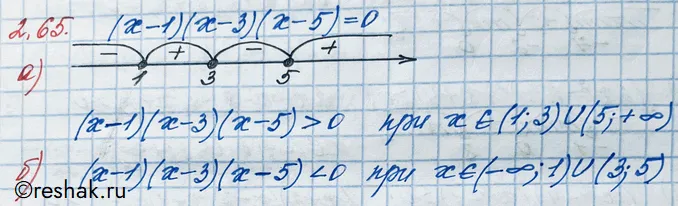 2.65. (x-1)(x-3)(x-5)=0
- + - +
а) 1 3 5
(x-1)(x-3)(x-5)>0 при x∈(1;3)∪(5;+∞)
б) (x-1)(x-3)(x-5)<0 при x∈(-∞;1)∪(3;5)
©reshak.ru